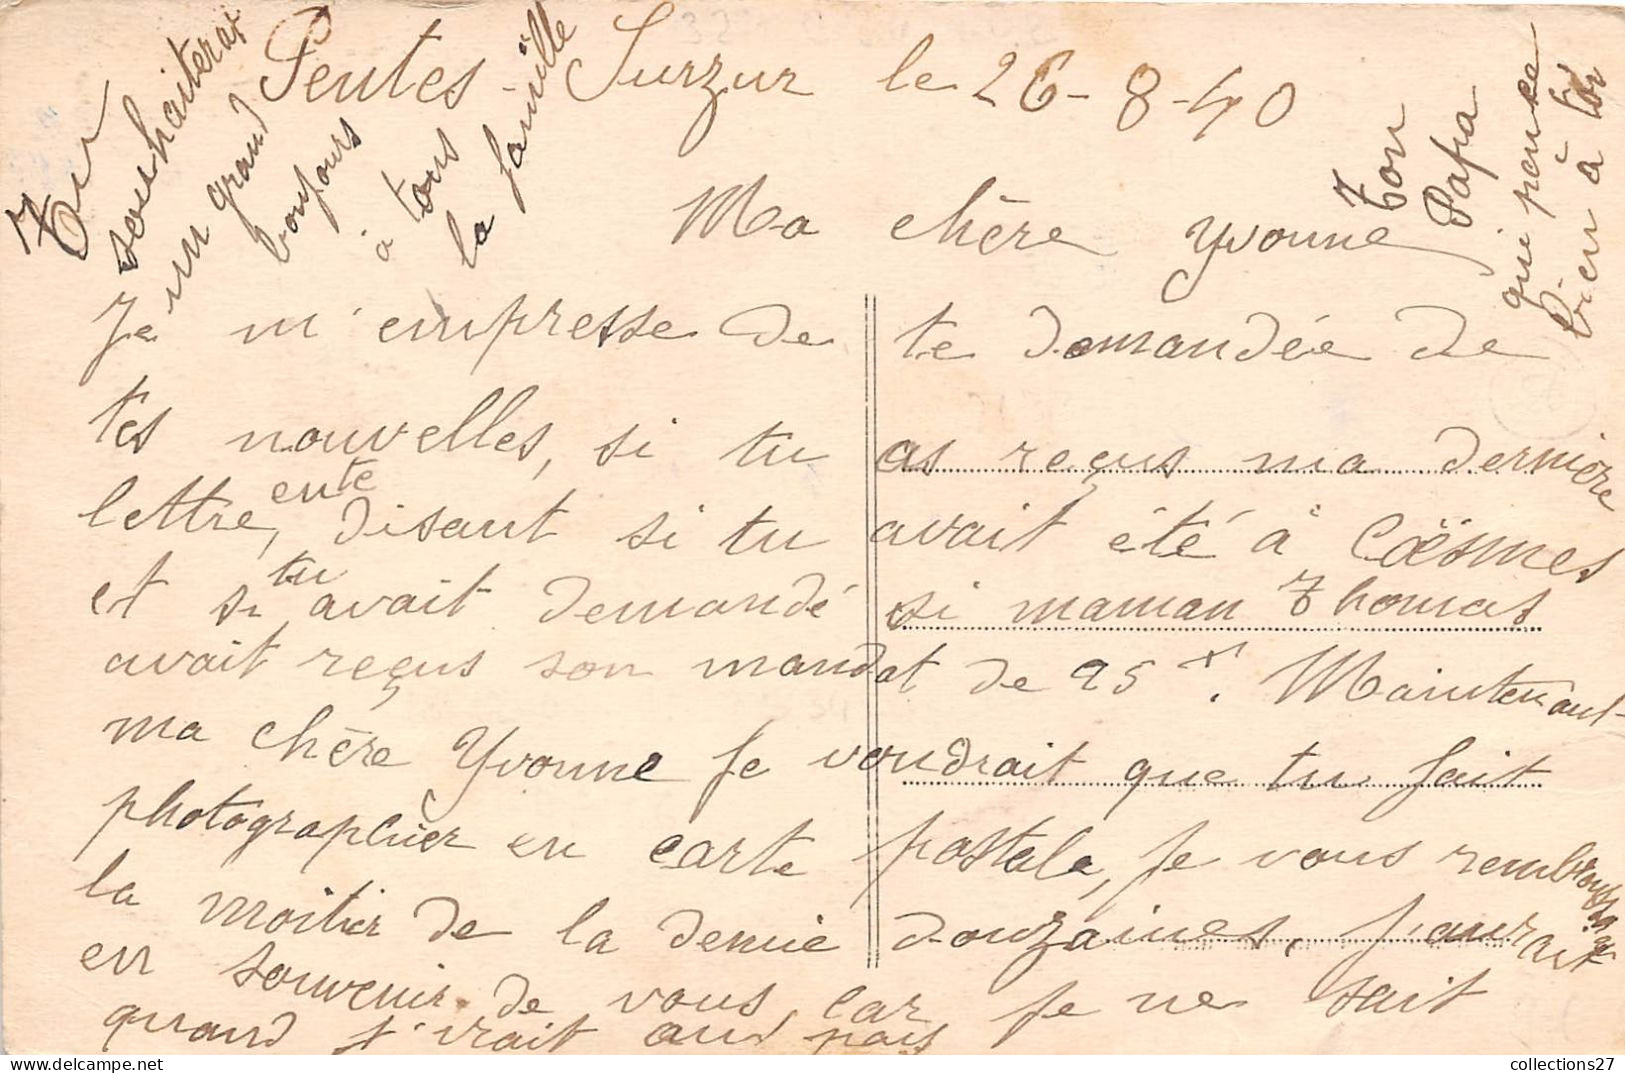 Pentes - Surzur le 26-8-40
Ma chère Yvonne
Je m'empresse de te demandée de
tes nouvelles, si tu as reçus ma dernière
lettre, ente disant si tu avait été à Coësmes
et si tu avait demandé si maman Thomas
avait reçus son mandat de 95 . Maintenant
ma chère Yvonne je voudrait que tu fait
photographier en carte postale, je vous
la moitier de la demie douzaines, j'aurait
en souvenir de vous, car je ne sait
quand j'irait aux pays
Tu
souhaiteras
un grand
bonjours
à tous
la famille
Ton
Papa
qui pense
bien à toi
collections27